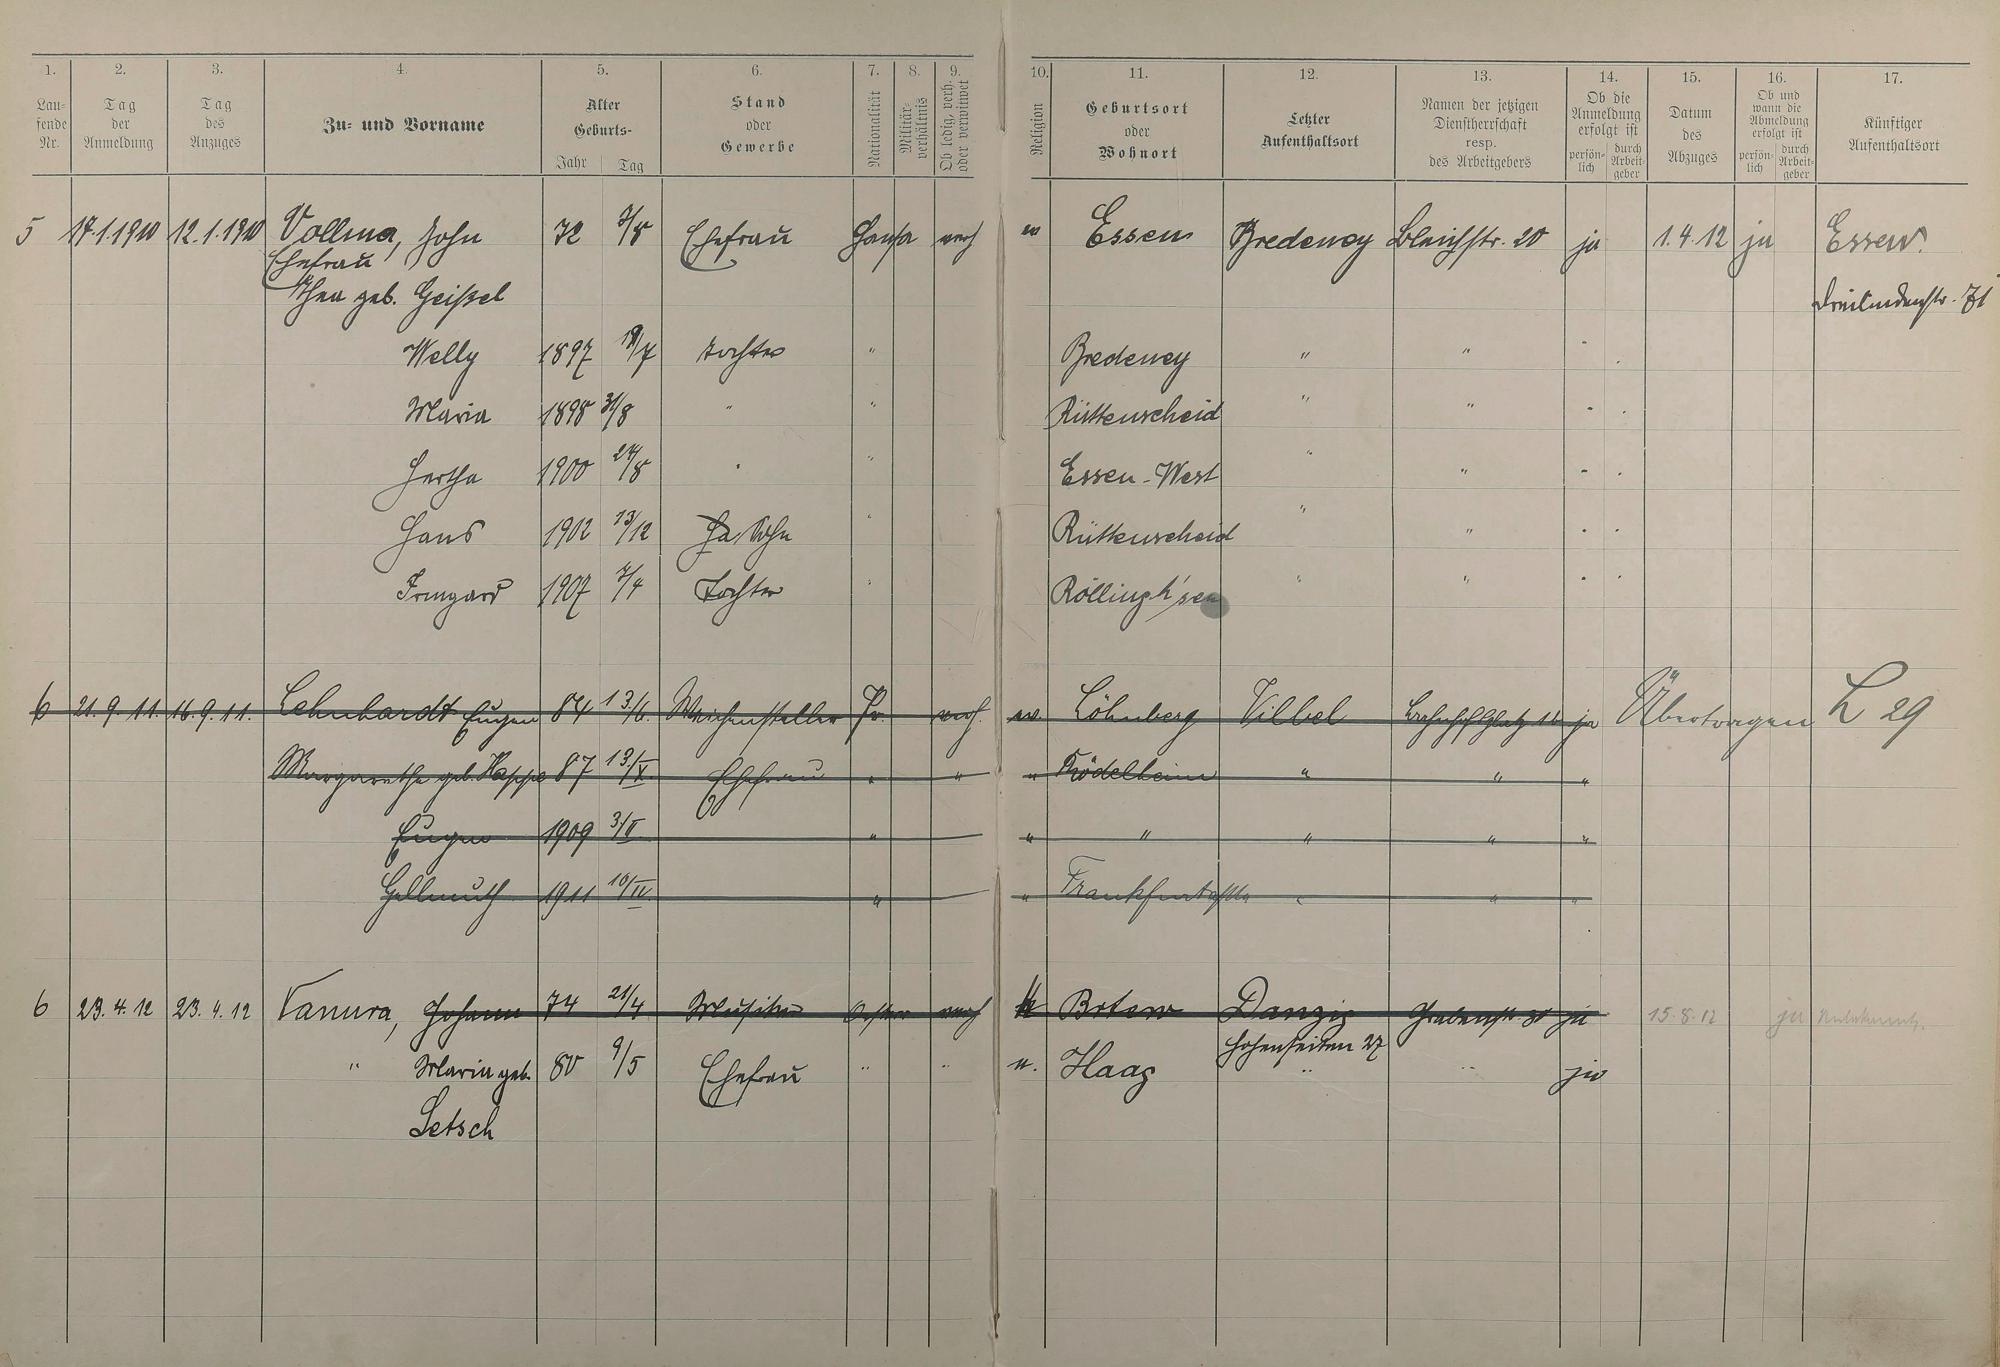 1. 2. 3. 4. 5. 6. 7. 8. 9. 10. 11. 12. 13. 14. 15. 16. 17.
Lau-
fende
Nr.
Tag
der
Anmeldung
Tag
des
Anzuges
Zu- und Vorname
Alter
Geburts-
Jahr Tag
Stand
oder
Gewerbe
Nationalität
Militär-
verhältnis
Ob ledig, verh.
oder verwitwet
Religion
Geburtsort
oder
Wohnort
Letzter
Aufenthaltsort
Namen der jetzigen
Dienstherrschaft
resp.
des Arbeitgebers
Ob die
Anmeldung
erfolgt ist
persön-
lich
durch
Arbeit-
geber
Datum
des
Abzuges
Ob und
wann die
Abmeldung
erfolgt ist
persön-
lich
durch
Arbeit-
geber
Künftiger
Aufenthaltsort
5 17.1.1910 12.1.1910 Vollmer, John 72 7/8 Ehefrau verh Essen Bredeney Bleichstr. 20 ja 1.4.12 ja Essen.
Ehefrau
Thea geb. Geißel Dreilindenstr. 71
Welly 1897 19/7 Tochter " Bredeney " "
Maria 1898 31/8 " " Rüttenscheid " "
Hertha 1900 24/8 " " Essen-West " "
Hans 1902 13/12 Sohn " Rüttenscheid " "
Irmgard 1907 7/4 Tochter " Röllingh'sen " "
6 21.9.11. 16.9.11. Lehnhardt Eugen 84 13/6. Weichensteller Pr. verh. ev. Löhnberg Vilbel ja Übertragen L 29
Margarethe geb. Happe 87 13/X. Ehefrau " " " Rödelheim " " "
Eugen 1909 3/II. " " " " " "
Hellmuth 1911 10/IV. " " Frankfurt " " "
6 23.4.12 23.4.12 Vanura, Johann 74 21/4 Musiker Oester verh Danzig Grabenstr. ja 15.8.12 ja
Hohenseiten 27
" Maria geb. 80 9/5 Ehefrau " " Haag " " ja
Letsch